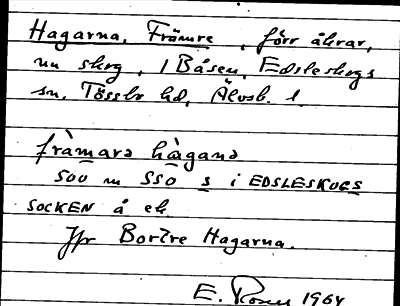 Hagarna, Främre, förr åkrar,
nu skog, i Båsen, Edsleskogs
sn, Tössbo hd, Älvsb. l.
fràmarə hàganə
500 m SSO s i EDSLESKOGS
SOCKEN å ek.
Jfr Bortre Hagarna.
E. 1964